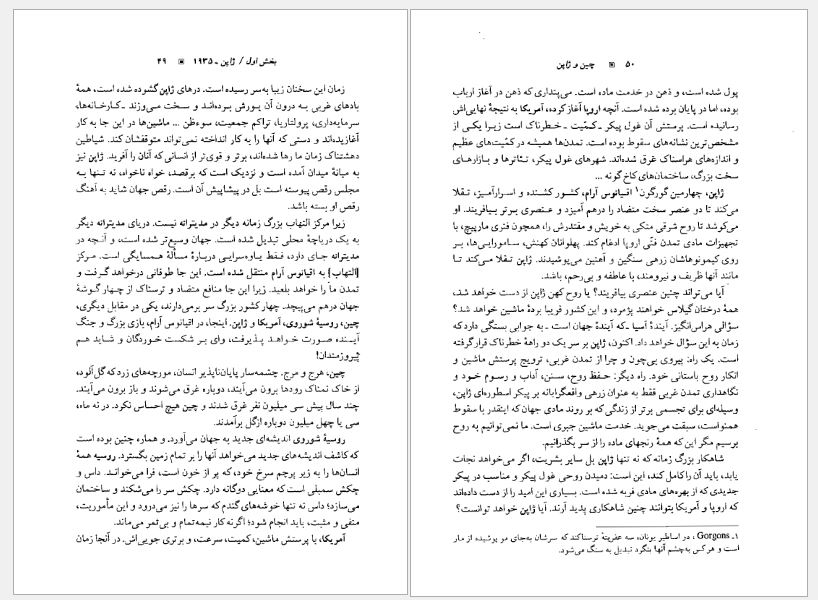 بخش اول / ژاپن ـ ۱۹۳۵ ▣ ۴۹
زمان این سخنان زیبا به‌سر رسیده است. درهای ژاپن گشوده شده است، همهٔ
بادهای غربی به درون آن یورش برده‌اند و سخت می‌وزند ـ کارخانه‌ها،
سرمایه‌داری، پرولتاریا، تراکم جمعیت، سوءظن ... ماشین‌ها در این جا به کار
آغازیده‌اند و دستی که آنها را به کار انداخته نمی‌تواند متوقفشان کند. شیاطین
دهشتناک زمان ما رها شده‌اند، برتر و قوی‌تر از انسانی که آنان را آفرید. ژاپن نیز
به میانهٔ میدان آمده است و نزدیک است که برقصد، خواه ناخواه، نه تنها به
مجلس رقص پیوسته است بل در پیشاپیش آن است. رقص جهان شاید به آهنگ
رقص او بسته باشد.
زیرا مرکز التهاب بزرگ زمانه دیگر در مدیترانه نیست. دریای مدیترانه دیگر
به یک دریاچهٔ محلی تبدیل شده است. جهان وسیع‌تر شده است، و آنچه در
مدیترانه جای دارد، فقط یاوه‌سرایی دربارهٔ مسألهٔ همسایگی است. مرکز
[التهاب] به اقیانوس آرام منتقل شده است. این جا طوفانی درخواهد گرفت و
تمدن ما را خواهد بلعید. زیرا این جا منافع متضاد و ترسناک از چهار گوشهٔ
جهان درهم می‌پیچد. چهار کشور بزرگ سر برمی‌دارند، یکی در مقابل دیگری،
چین، روسیهٔ شوروی، آمریکا و ژاپن. اینجا، در اقیانوس آرام، بازی بزرگ و جنگ
آینده صورت خواهد پذیرفت، وای بر شکست خوردگان و شاید هم
پیروزمندان!
چین، هرج و مرج. چشمه‌سار پایان‌ناپذیر انسان، مورچه‌های زرد که گل‌آلود،
از خاک نمناک رودها برون می‌آیند، دوباره غرق می‌شوند و باز برون می‌آیند.
چند سال پیش سی میلیون نفر غرق شدند و چین هیچ احساس نکرد. در نه ماه،
سی یا چهل میلیون دوباره ازگل برآمدند.
روسیهٔ شوروی اندیشه‌ای جدید به جهان می‌آورد. و هماره چنین بوده است
که کاشف اندیشه‌های جدید می‌خواهد آنها را بر تمام زمین بگسترد. روسیه همهٔ
انسان‌ها را به زیر پرچم سرخ خود، که پر از خون است، فرا می‌خواند. داس و
چکش سمبلی است که معنایی دوگانه دارد. چکش سر را می‌شکند و ساختمان
می‌سازد؛ داس نه تنها خوشه‌های گندم که سرها را نیز می‌درود و این مأموریت،
منفی و مثبت، باید انجام شود؛ اگرنه کار نیمه‌تمام و بی‌ثمر می‌ماند.
آمریکا، با پرستش ماشین، کمیت، سرعت، و برتری جویی‌اش. در آنجا زمان
۵۰ ▣ چین و ژاپن
پول شده است، و ذهن در خدمت ماده، است. می‌پنداری که ذهن در آغاز ارباب
بوده، اما در پایان برده شده است. آنچه اروپا آغاز کرده، آمریکا به نتیجهٔ نهایی‌اش
رسانیده است. پرستش آن غول پیکر ـ کمّیت ـ خطرناک است زیرا یکی از
مشخص‌ترین نشانه‌های سقوط بوده است. تمدن‌ها همیشه در کمّیت‌های عظیم
و اندازه‌های هراسناک غرق شده‌اند. شهرهای غول پیکر، تئاترها و بازارهای
سخت بزرگ، ساختمان‌های کاخ گونه ...
ژاپن، چهارمین گورگون۱ اقیانوس آرام، کشور کشنده و اسرارآمیز، تقلا
می‌کند تا دو عنصر سخت متضاد را درهم آمیزد و عنصری برتر بیافریند. او
می‌کوشد تا روح شرقی متکی به خویش و مقتدرش را، همچون فنری مارپیچ، با
تجهیزات مادی تمدن فنّی اروپا ادغام کند. پهلوانان کهنش، سامورایی‌ها، بر
روی کیمونوهاشان زرهی سنگین و آهنین می‌پوشیدند. ژاپن تقلا می‌کند تا
مانند آنها ظریف و نیرومند، با عاطفه و بی‌رحم، باشد.
آیا می‌تواند چنین عنصری بیافریند؟ یا روح کهن ژاپن از دست خواهد شد،
همهٔ درختان گیلاس خواهند پژمرد، و این کشور فریبا بردهٔ ماشین خواهد شد؟
سؤالی هراس‌انگیز. آیندهٔ آسیا ـ که آیندهٔ جهان است ـ به جوابی بستگی دارد که
زمان به این سؤال خواهد داد. اکنون، ژاپن بر سر یک دو راههٔ خطرناک قرار گرفته
است. یک راه: پیروی بی‌چون و چرا از تمدن غربی، ترویج پرستش ماشین و
انکار روح باستانی خود. راه دیگر: حفظ روح، سنن، آداب و رسوم خود و
نگاهداری تمدن غربی فقط به عنوان زرهی واقع‌گرایانه بر پیکر اسطوره‌ای ژاپن،
وسیله‌ای برای تجسمی برتر از زندگی که بر روند مادی جهان که اینقدر با سقوط
همنواست، سبقت می‌جوید. خدمت ماشین جبری است. ما نمی‌توانیم به روح
برسیم مگر این که همهٔ رنجهای ماده را از سر بگذرانیم.
شاهکار بزرگ زمانه که نه تنها ژاپن بل سایر بشریت، اگر می‌خواهد نجات
یابد، باید آن را کامل کند، این است: دمیدن روحی غول پیکر و مناسب در پیکر
جدیدی که از بهره‌های مادی فربه شده است. بسیاری این امید را از دست داده‌اند
که اروپا و آمریکا بتوانند چنین شاهکاری پدید آرند. آیا ژاپن خواهد توانست؟
۱ـ Gorgons ، در اساطیر یونان، سه عفریتهٔ ترسناکند که سرشان به‌جای مو پوشیده از مار
است و هر کس به‌چشم آنها بنگرد تبدیل به سنگ می‌شود.